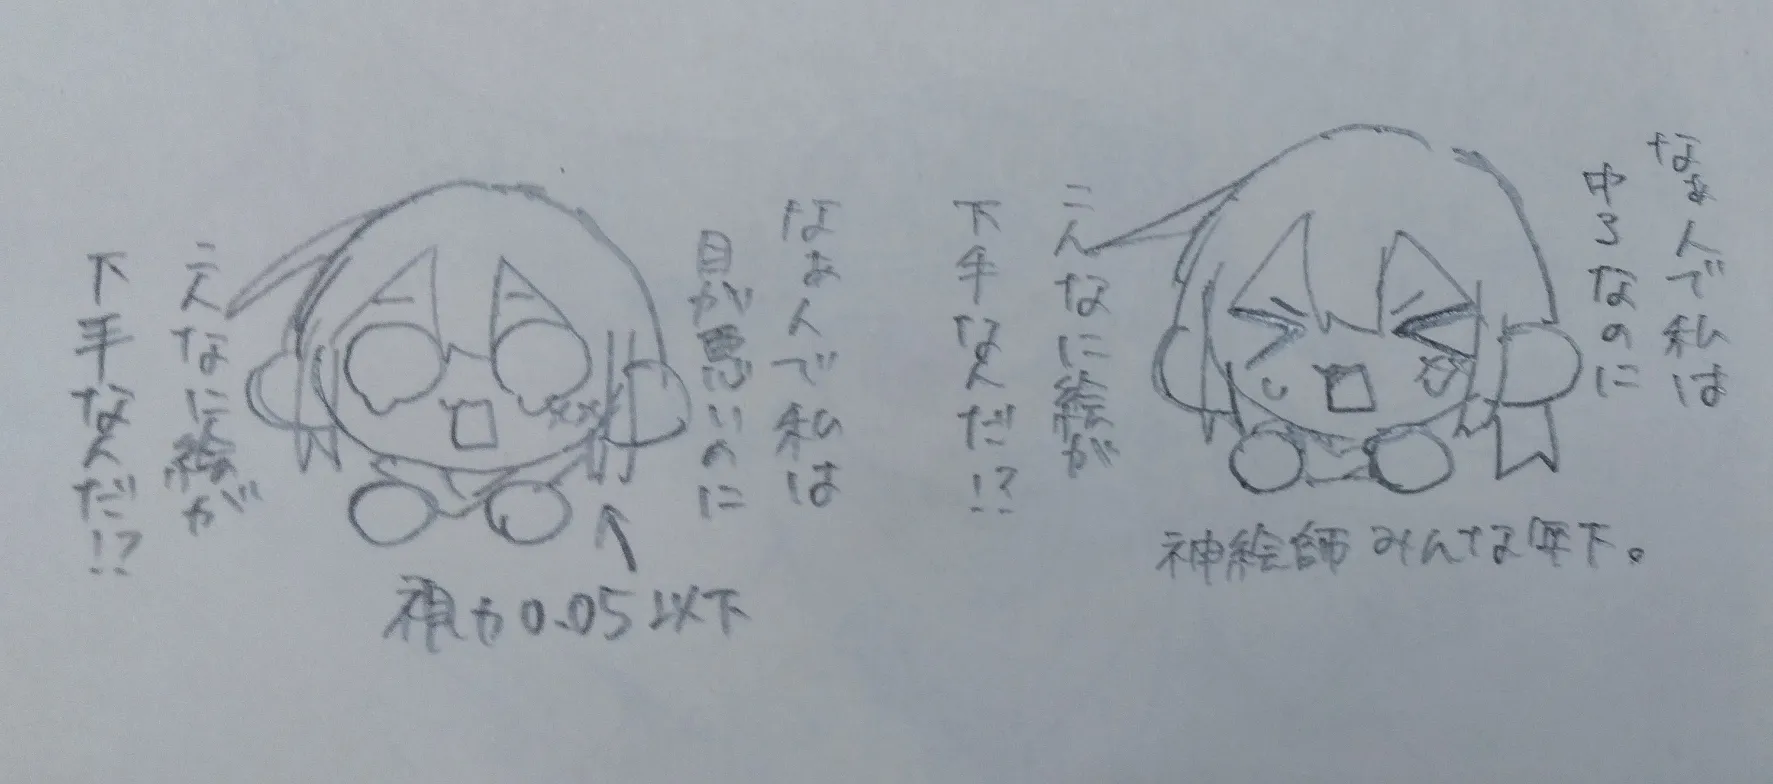 なぁんで私は
中3なのに
こんなに絵が
下手なんだ!?
神絵師みんな年下。
なぁんで私は
目が悪いのに
こんなに絵が
下手なんだ!?
視力0.05以下